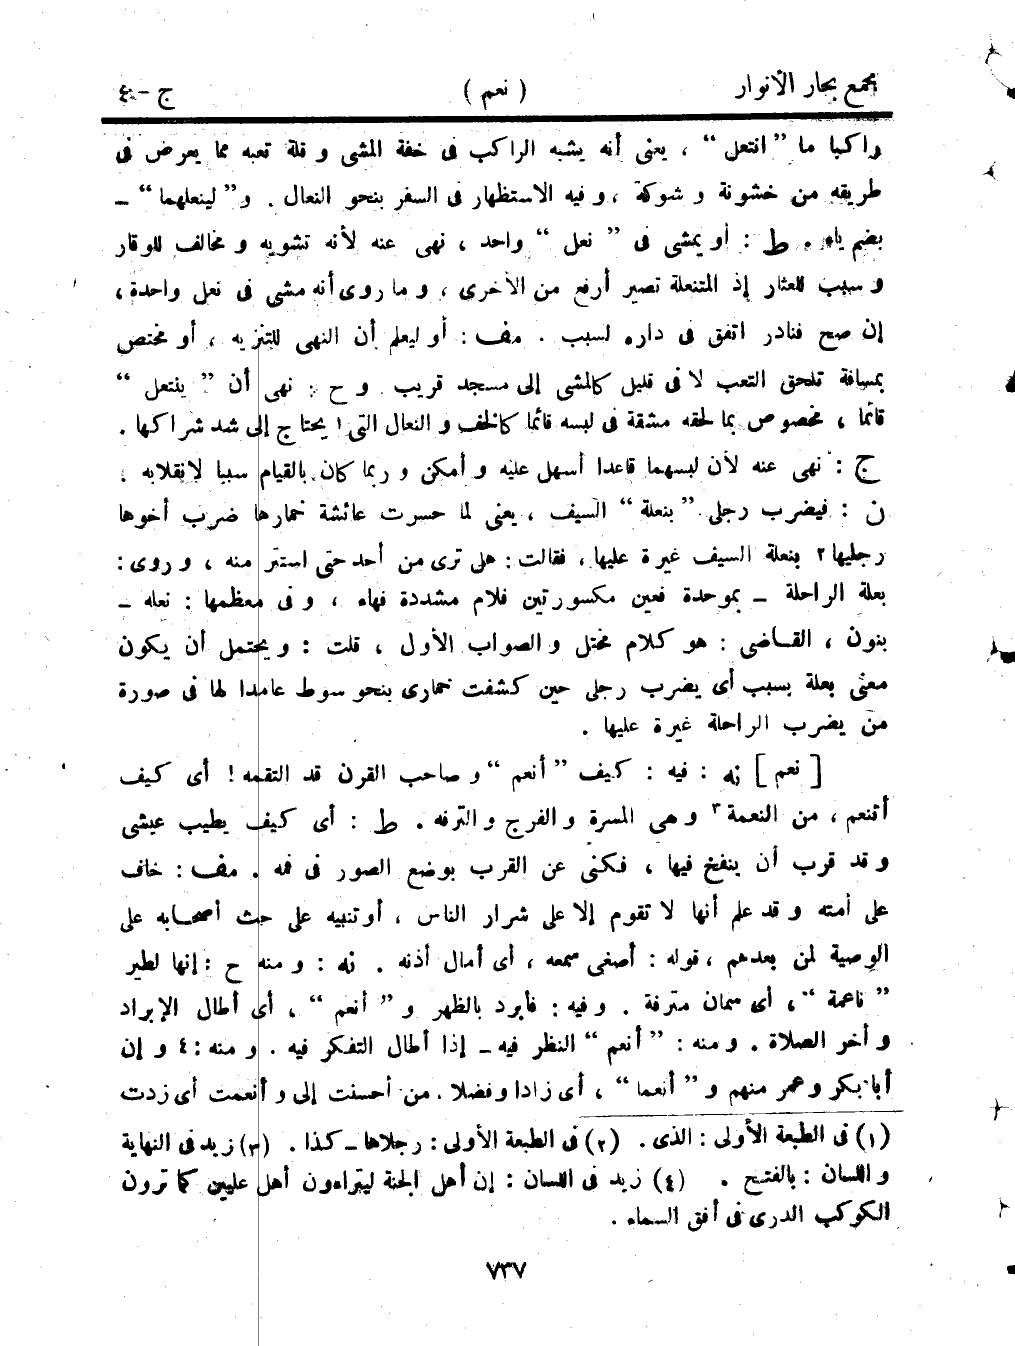 مجمع بحار الأنوار
( نعم )
ج - ٤
راكبا ما ” انتعل “ ، يعنى أنه يشبه الراكب فى خفة المشى و قلة تعبه مما يعرض فى
طريقه من خشونة و شوكة ، و فيه الاستظهار فى السفر بنحو النعال . و ” لينعلهما “ ــ
بضم ياء . ط : أو يمشى فى ” نعل “ واحد ، نهى عنه لأنه تشويه و مخالف للوقار
و سبب للعثار إذ المتنعلة تصير أرفع من الأخرى ، و ما روى أنه مشى فى نعل واحدة ،
إن صح فنادر اتفق فى داره لسبب . مف : أو ليعلم أن النهى للتنزيه ، أو مختص
بمسافة تلحق التعب لا فى قليل كالمشى إلى مسجد قريب . و ح : نهى أن ” ينتعل “
قائما ، مخصوص بما لحقه مشقة فى لبسه قائما كالخف و النعال التى ١ يحتاج إلى شد شراكها .
ج : نهى عنه لأن لبسهما قاعدا أسهل عليه و أمكن و ربما كان بالقيام سببا لانقلابه .
ن : فيضرب رجلى ” بنعلة “ السيف ، يعنى لما حسرت عائشة خمارها ضرب أخوها
رجليها ٢ بنعلة السيف غيرة عليها ، فقالت : هل ترى من أحد حتى استتر منه ، و روى :
بعلة الراحلة ــ بموحدة فعين مكسورتين فلام مشددة فهاء ، و فى معظمها : نعله ــ
بنون ، القاضى : هو كلام مختل و الصواب الأول ، قلت : و يحتمل أن يكون
معنى بعلة بسبب أى يضرب رجلى حين كشفت خمارى بنحو سوط عامدا لها فى صورة
من يضرب الراحلة غيرة عليها .
[ نعم ] نه : فيه : كيف ” أنعم “ و صاحب القرن قد التقمه ! أى كيف
أتنعم ، من النعمة ٣ و هى المسرة و الفرج و الترفه . ط : أى كيف يطيب عيشى
و قد قرب أن ينفخ فيها ، فكنى عن القرب بوضع الصور فى فمه . مف : خاف
على أمته و قد علم أنها لا تقوم إلا على شرار الناس ، أو تنبيه على حث أصحابه على
الوصية لمن بعدهم ، قوله : أصغى سمعه ، أى أمال أذنه . نه : و منه ح : إنها لطير
” ناعمة “ ، أى سمان مترفة . و فيه : فأبرد بالظهر و ” أنعم “ ، أى أطال الإبراد
و أخر الصلاة . و منه : ” أنعم “ النظر فيه ــ إذا أطال التفكر فيه . و منه : ٤ و إن
أبا بكر و عمر منهم و ” أنعما “ ، أى زادا و فضلا . من أحسنت إلى و أنعمت أى زدت
(١) فى الطبعة الأولى : الذى . (٢) فى الطبعة الأولى : رجلاها ــ كذا . (٣) زيد فى النهاية
و اللسان : بالفتح . (٤) زيد فى اللسان : إن أهل الجنة ليتراءون أهل عليين كما ترون
الكوكب الدرى فى أفق السماء .
٧٣٧